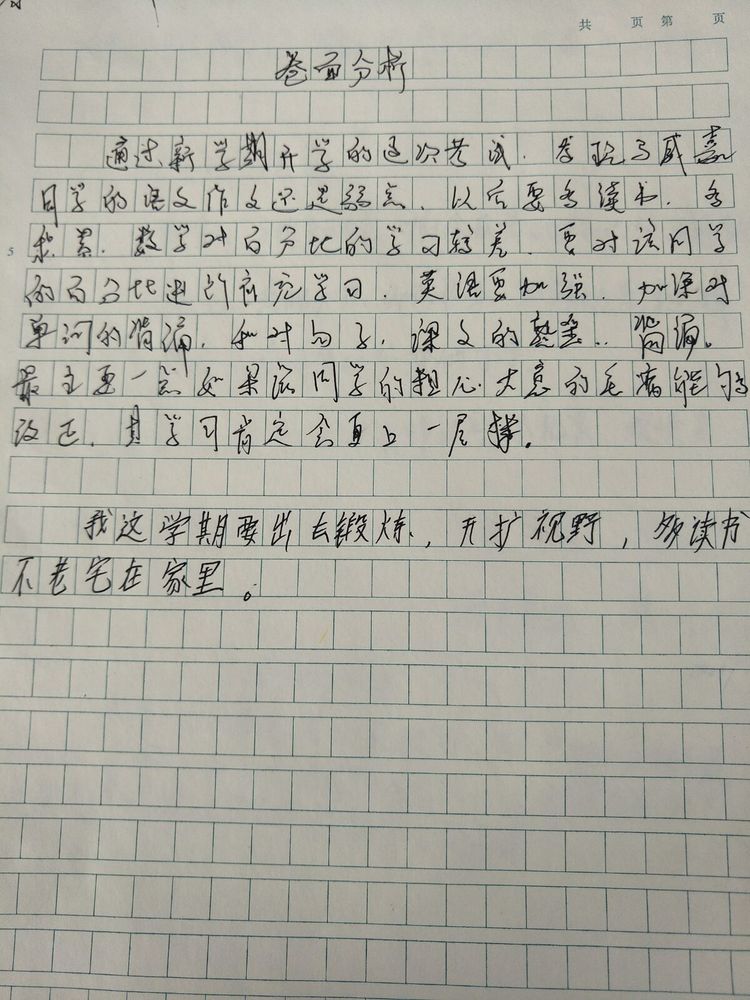 共 页 第 页
卷面分析
通过新学期开学的这次考试，发现马威嘉
同学的语文作文还是弱点，以后要多读书，多
积累，数学对百分比的学习较差，要对该同学
的百分比进行补充学习，英语要加强，加深对
单词的背诵，和对句子，课文的熟，背诵。
最主要一点如果该同学的粗心大意的毛病能够
改正，其学习肯定会更上一层楼。
5
我这学期要出去锻炼，开扩视野，多读书
不老宅在家里。